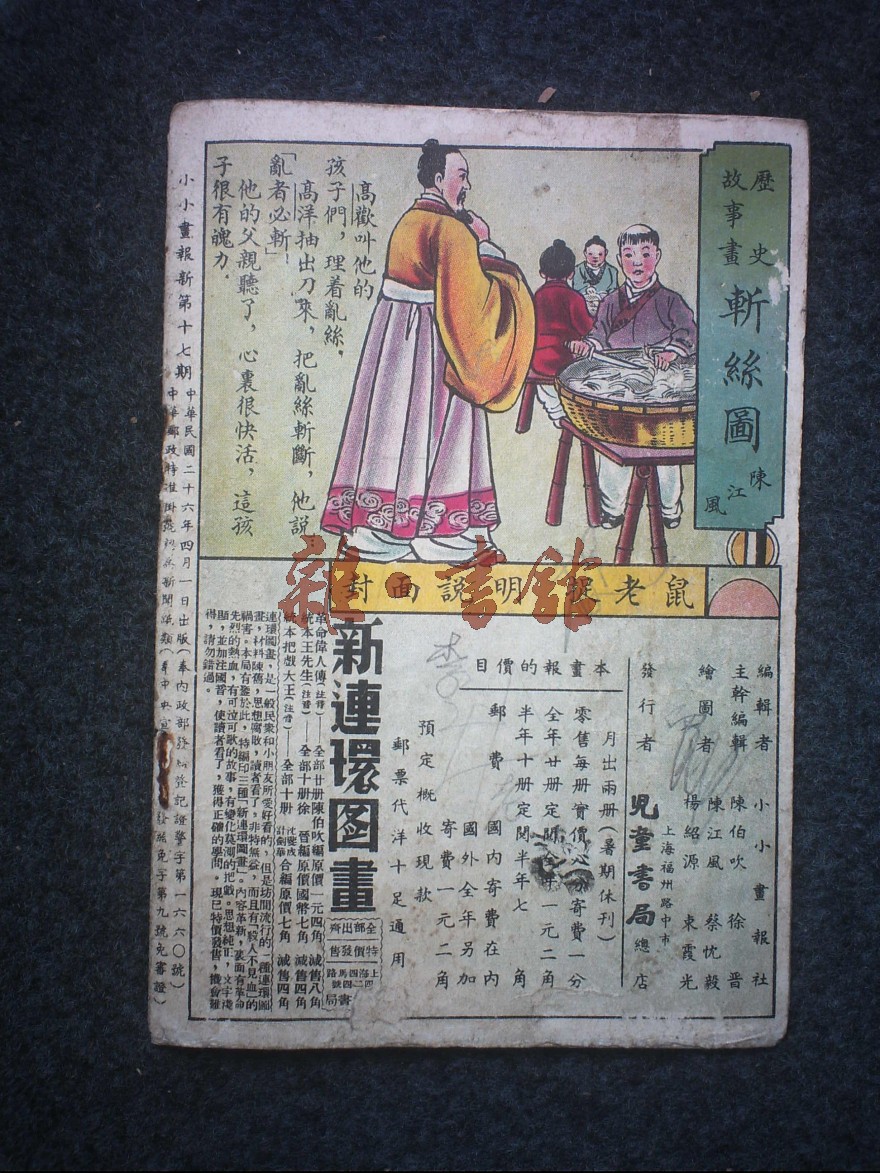 歷史
故事畫
斬絲圖
陳江風
高歡叫他的
孩子們，理着亂絲，
高洋抽出刀來，把亂絲斬斷，他說：
「亂者必斬！」
他的父親聽了，心裏很快活，這孩
子很有魄力．
小小畫報新第十七期
中華民國二十六年四月一日出版
鼠老捉 明說面封
編輯者 小小畫報社
主幹編輯 陳伯吹 徐晋
繪圖者 陳江風 蔡忱毅
楊紹源 東霞光
發行者 兒童書局總店
上海福州路中市
本畫報的價目
月出兩册(暑期休刊)
零售每册實價 分寄費一分
全年廿册定閱 一元二角
半年十册定閱半年七角
郵費 國內寄費在內
國外全年另加
寄費一元二角
預定概收現款
郵票代洋十足通用
新連環图畫
全部出齊
特價發售
上海四馬路
四二四號
書局
革命偉人傳(注音)——全部廿册陳伯吹編原價一元四角 減售八角
統本王先生(注音)——全部十册徐 晉編原價國幣七角 減售四角
統本把戲大王(注音)——全部十册 沈斐成 計劍華 合編原價七角 減售四角
連環圖畫，是一般民衆和小朋友所愛好看的，但是坊間流行的一種連環圖
畫，材料陳舊，思想腐敗，讀者看了，非特無益，而且有「殺人不見血」的
禍害。本局有鑒於此，特編印三種「新連環圖畫」。內容革新，裏面有革命
先烈的熱血，有可泣可歌的故事，有變化莫測的把戲。思想純正，文字淺
顯，並加注國音，使讀者看了，獲得正確的學問。現已特價發售，機會難
得，請勿錯過。
雜·書館